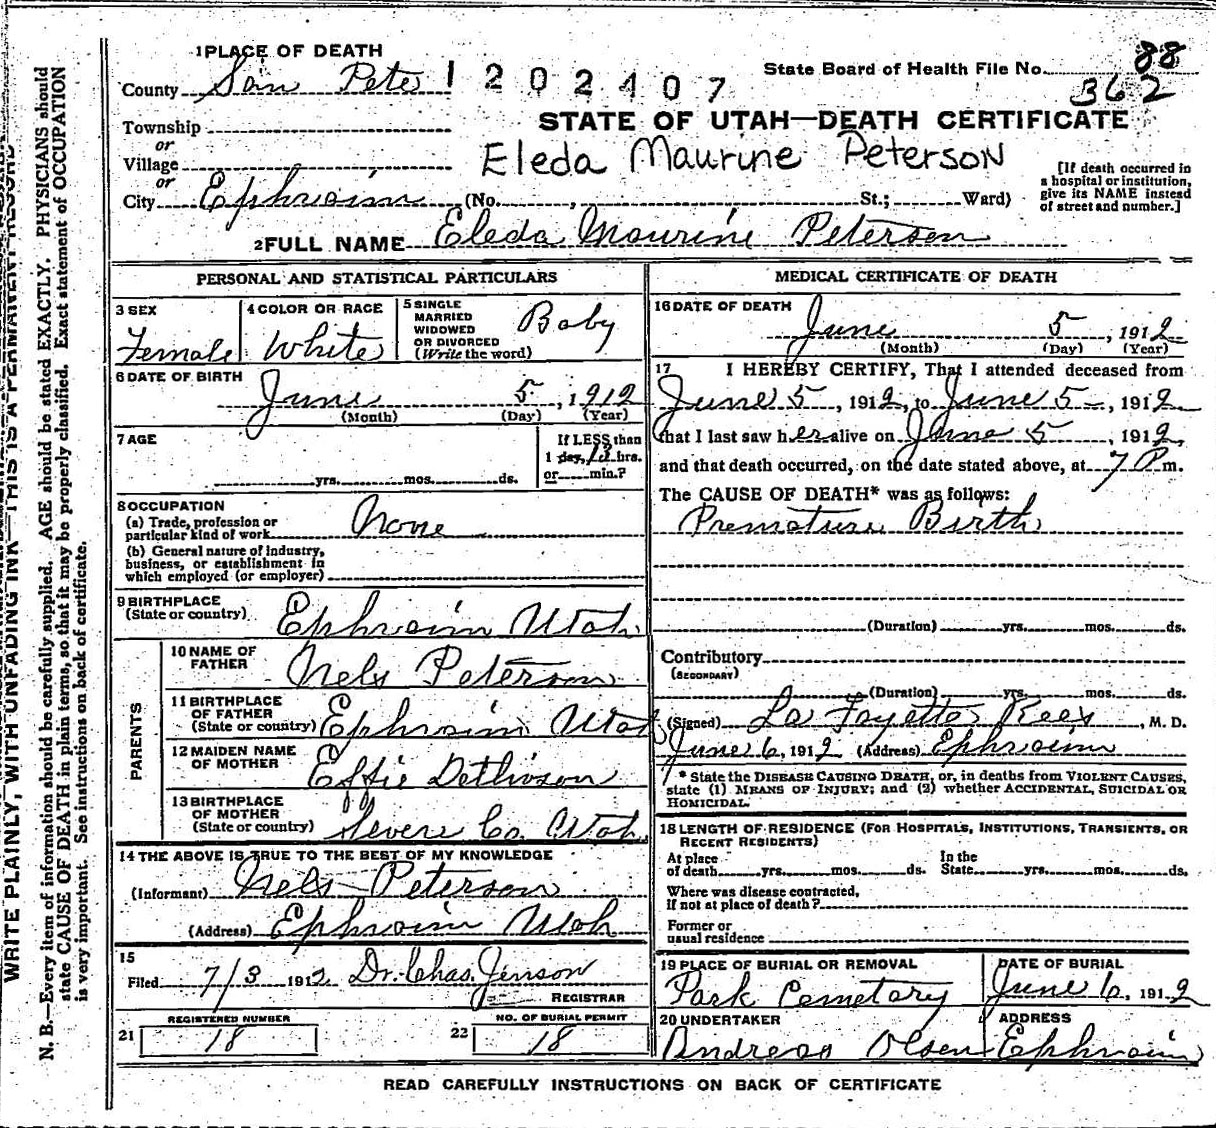 1 PLACE OF DEATH
County San Pete 1202407 State Board of Health File No. 88
362
Township
STATE OF UTAH—DEATH CERTIFICATE
or
Village
Eleda Maurine Peterson
or
City Ephraim (No. , St.; Ward)
[If death occurred in a hospital or institution, give its NAME instead of street and number.]
2 FULL NAME Eleda Maurine Peterson
PERSONAL AND STATISTICAL PARTICULARS
3 SEX Female
4 COLOR OR RACE White
5 SINGLE MARRIED WIDOWED OR DIVORCED (Write the word) Baby
6 DATE OF BIRTH
June 5, 1912
(Month) (Day) (Year)
7 AGE
yrs. mos. ds.
If LESS than
1 day, 12 hrs.
or min.?
8 OCCUPATION
(a) Trade, profession or particular kind of work None
(b) General nature of industry, business, or establishment in which employed (or employer)
9 BIRTHPLACE
(State or country) Ephraim Utah
PARENTS
10 NAME OF FATHER Nels Peterson
11 BIRTHPLACE OF FATHER (State or country) Ephraim Utah
12 MAIDEN NAME OF MOTHER Effie
13 BIRTHPLACE OF MOTHER (State or country) Severe Co. Utah
14 THE ABOVE IS TRUE TO THE BEST OF MY KNOWLEDGE
(Informant) Nels Peterson
(Address) Ephraim Utah
15
Filed 7/3 1912 Dr. Chas. Jenson
REGISTRAR
REGISTERED NUMBER
21 18
NO. OF BURIAL PERMIT
22 18
MEDICAL CERTIFICATE OF DEATH
16 DATE OF DEATH
June 5, 1912
(Month) (Day) (Year)
17 I HEREBY CERTIFY, That I attended deceased from
June 5, 1912, to June 5, 1912
that I last saw her alive on June 5, 1912,
and that death occurred, on the date stated above, at 7 P m.
The CAUSE OF DEATH* was as follows:
Premature Birth
(Duration) yrs. mos. ds.
Contributory
(SECONDARY)
(Duration) yrs. mos. ds.
(Signed) La Fayette Rees, M. D.
June 6, 1912 (Address) Ephraim
* State the DISEASE CAUSING DEATH, or, in deaths from VIOLENT CAUSES,
state (1) MEANS OF INJURY; and (2) whether ACCIDENTAL, SUICIDAL OR
HOMICIDAL.
18 LENGTH OF RESIDENCE (FOR HOSPITALS, INSTITUTIONS, TRANSIENTS, OR
RECENT RESIDENTS)
At place of death yrs. mos. ds. In the State yrs. mos. ds.
Where was disease contracted,
if not at place of death?
Former or
usual residence
19 PLACE OF BURIAL OR REMOVAL
Park Cemetary
DATE OF BURIAL
June 6, 1912
20 UNDERTAKER
Andreas Olsen
ADDRESS
Ephraim
READ CAREFULLY INSTRUCTIONS ON BACK OF CERTIFICATE
WRITE PLAINLY, WITH UNFADING INK—THIS IS A PERMANENT RECORD
N. B.—Every item of information should be carefully supplied. AGE should be stated EXACTLY. PHYSICIANS should
state CAUSE OF DEATH in plain terms, so that it may be properly classified. Exact statement of OCCUPATION
is very important. See instructions on back of certificate.